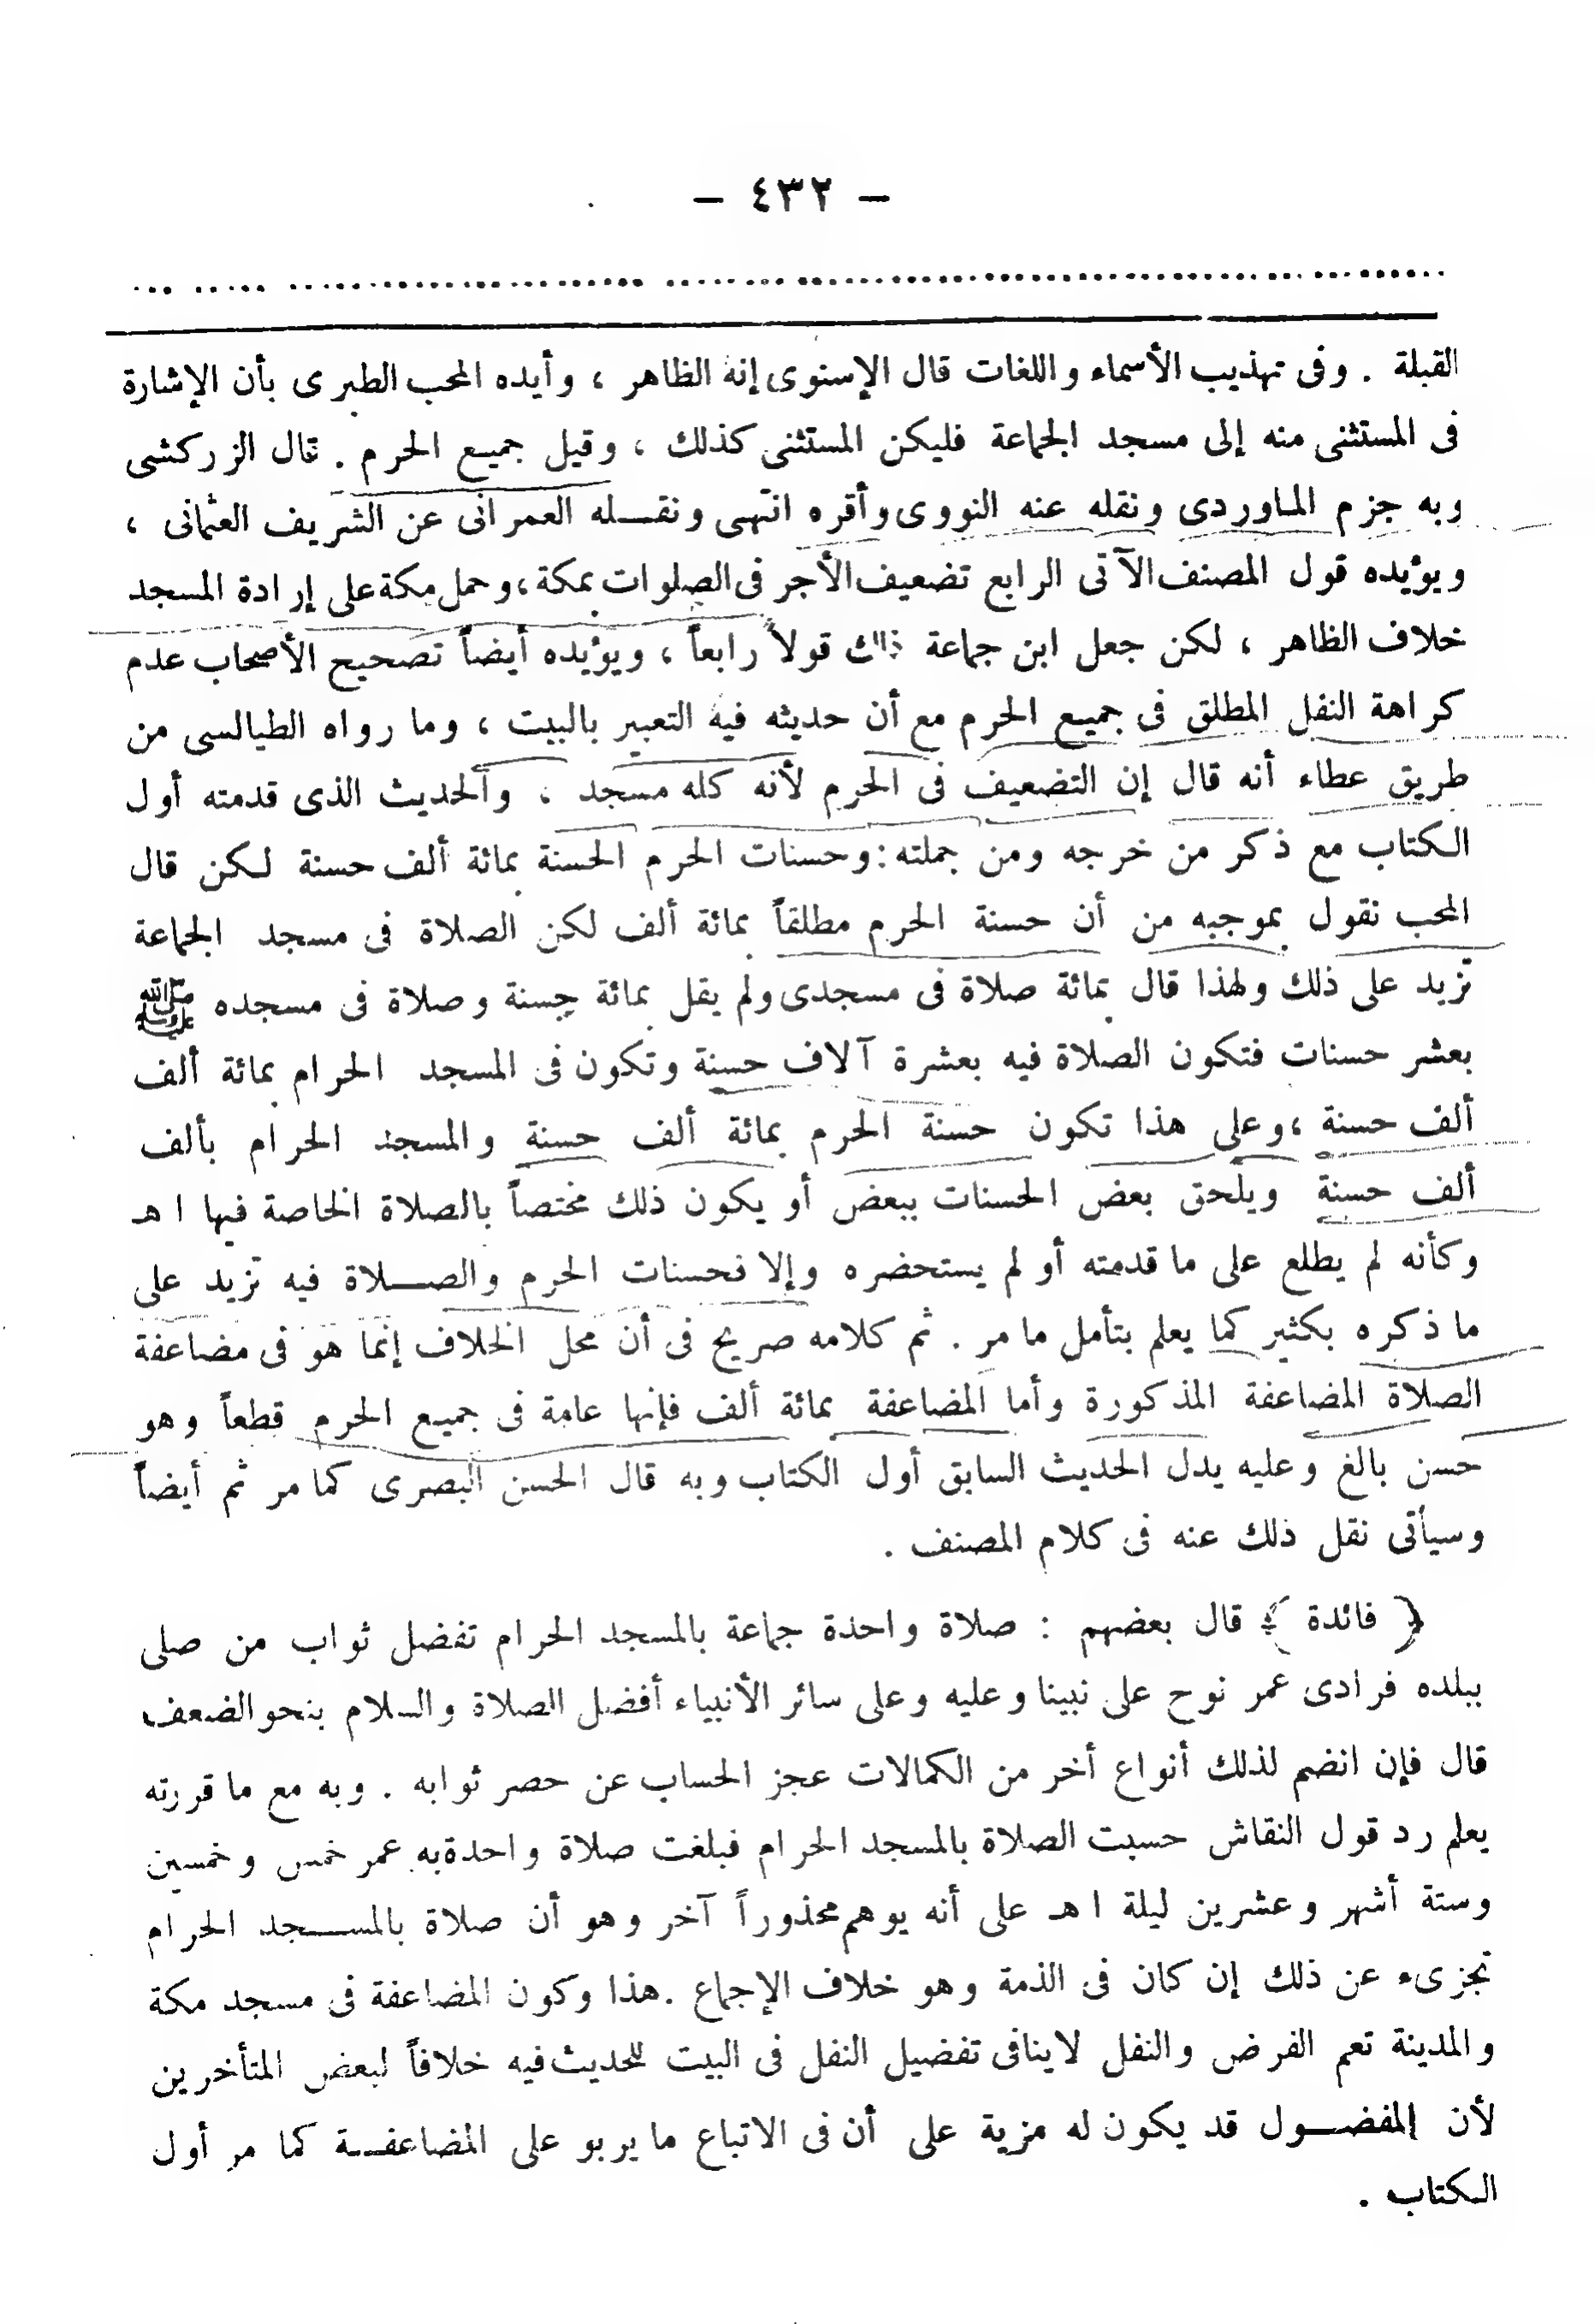 — ٤٣٢ —
القبلة . وفى تهذيب الأسماء واللغات قال الإسنوى إنه الظاهر ، وأيده المحب الطبرى بأن الإشارة
فى المستثنى منه إلى مسجد الجماعة فليكن المستثنى كذلك ، وقيل جميع الحرم . قال الزركشى
وبه جزم الماوردى ونقله عنه النووى وأقره انتهى ونقله العمرانى عن الشريف العثمانى ،
ويؤيده قول المصنف الآتى الرابع تضعيف الأجر فى الصلوات بمكة ، وحمل مكة على إرادة المسجد
خلاف الظاهر ، لكن جعل ابن جماعة ذاك قولاً رابعاً ، ويؤيده أيضاً تصحيح الأصحاب عدم
كراهة النفل المطلق فى جميع الحرم مع أن حديثه فيه التعبير بالبيت ، وما رواه الطيالسى من
طريق عطاء أنه قال إن التضعيف فى الحرم لأنه كله مسجد ، والحديث الذى قدمته أول
الكتاب مع ذكر من خرجه ومن جملته : وحسنات الحرم الحسنة بمائة ألف حسنة لكن قال
المحب نقول بموجبه من أن حسنة الحرم مطلقاً بمائة ألف لكن الصلاة فى مسجد الجماعة
تزيد على ذلك ولهذا قال بمائة صلاة فى مسجدى ولم يقل بمائة حسنة وصلاة فى مسجده ﷺ
بعشر حسنات فتكون الصلاة فيه بعشرة آلاف حسنة وتكون فى المسجد الحرام بمائة ألف
ألف حسنة ، وعلى هذا تكون حسنة الحرم بمائة ألف حسنة والمسجد الحرام بألف
ألف حسنة ويلحق بعض الحسنات ببعض أو يكون ذلك مختصاً بالصلاة الخاصة فيها ا هـ
وكأنه لم يطلع على ما قدمته أو لم يستحضره وإلا فحسنات الحرم والصلاة فيه تزيد على
ما ذكره بكثير كما يعلم بتأمل ما مر . ثم كلامه صريح فى أن محل الخلاف إنما هو فى مضاعفة
الصلاة المضاعفة المذكورة وأما المضاعفة بمائة ألف فإنها عامة فى جميع الحرم قطعاً وهو
حسن بالغ وعليه يدل الحديث السابق أول الكتاب وبه قال الحسن البصرى كما مر ثم أيضاً
وسيأتى نقل ذلك عنه فى كلام المصنف .
﴿ فائدة ﴾ قال بعضهم : صلاة واحدة جماعة بالمسجد الحرام تفضل ثواب من صلى
ببلده فرادى عمر نوح على نبينا وعليه وعلى سائر الأنبياء أفضل الصلاة والسلام بنحو الضعف
قال فإن انضم لذلك أنواع أخر من الكمالات عجز الحساب عن حصر ثوابه . وبه مع ما قررته
يعلم رد قول النقاش حسبت الصلاة بالمسجد الحرام فبلغت صلاة واحدة به عمر خمس وخمسين
وستة أشهر وعشرين ليلة ا هـ على أنه يوهم محذوراً آخر وهو أن صلاة بالمسجد الحرام
تجزىء عن ذلك إن كان فى الذمة وهو خلاف الإجماع . هذا وكون المضاعفة فى مسجد مكة
والمدينة تعم الفرض والنفل لاينافى تفضيل النفل فى البيت للحديث فيه خلافاً لبعض المتأخرين
لأن المفضول قد يكون له مزية على أن فى الاتباع ما يربو على المضاعفة كما مر أول
الكتاب .